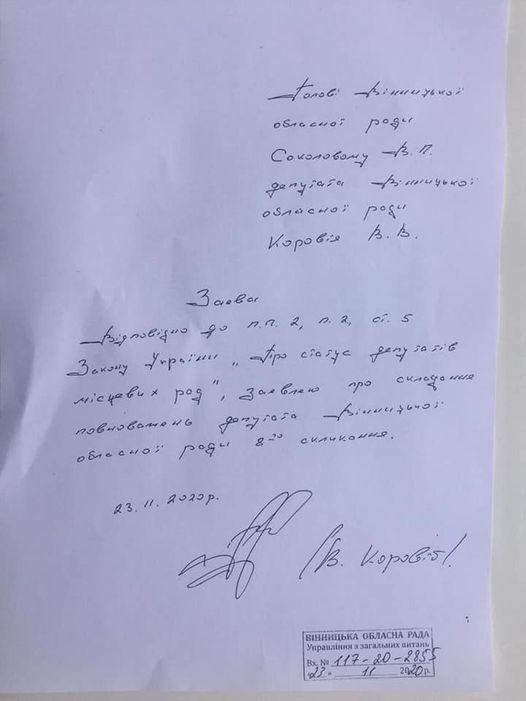 Голові Вінницької
обласної ради
Соколовому В.П.
депутата Вінницької
обласної ради
Коровія В.В.
Заява
Відповідно до п.п. 2, п. 2, ст. 5
Закону України „Про статус депутатів
місцевих рад", заявляю про складання
повноважень депутата Вінницької
обласної ради 8го скликання.
23.11.2020р.
/В. Коровій/
ВІННИЦЬКА ОБЛАСНА РАДА
Управління з загальних питань
Вх. № 117-20-2855
"23" 11 2020 р.